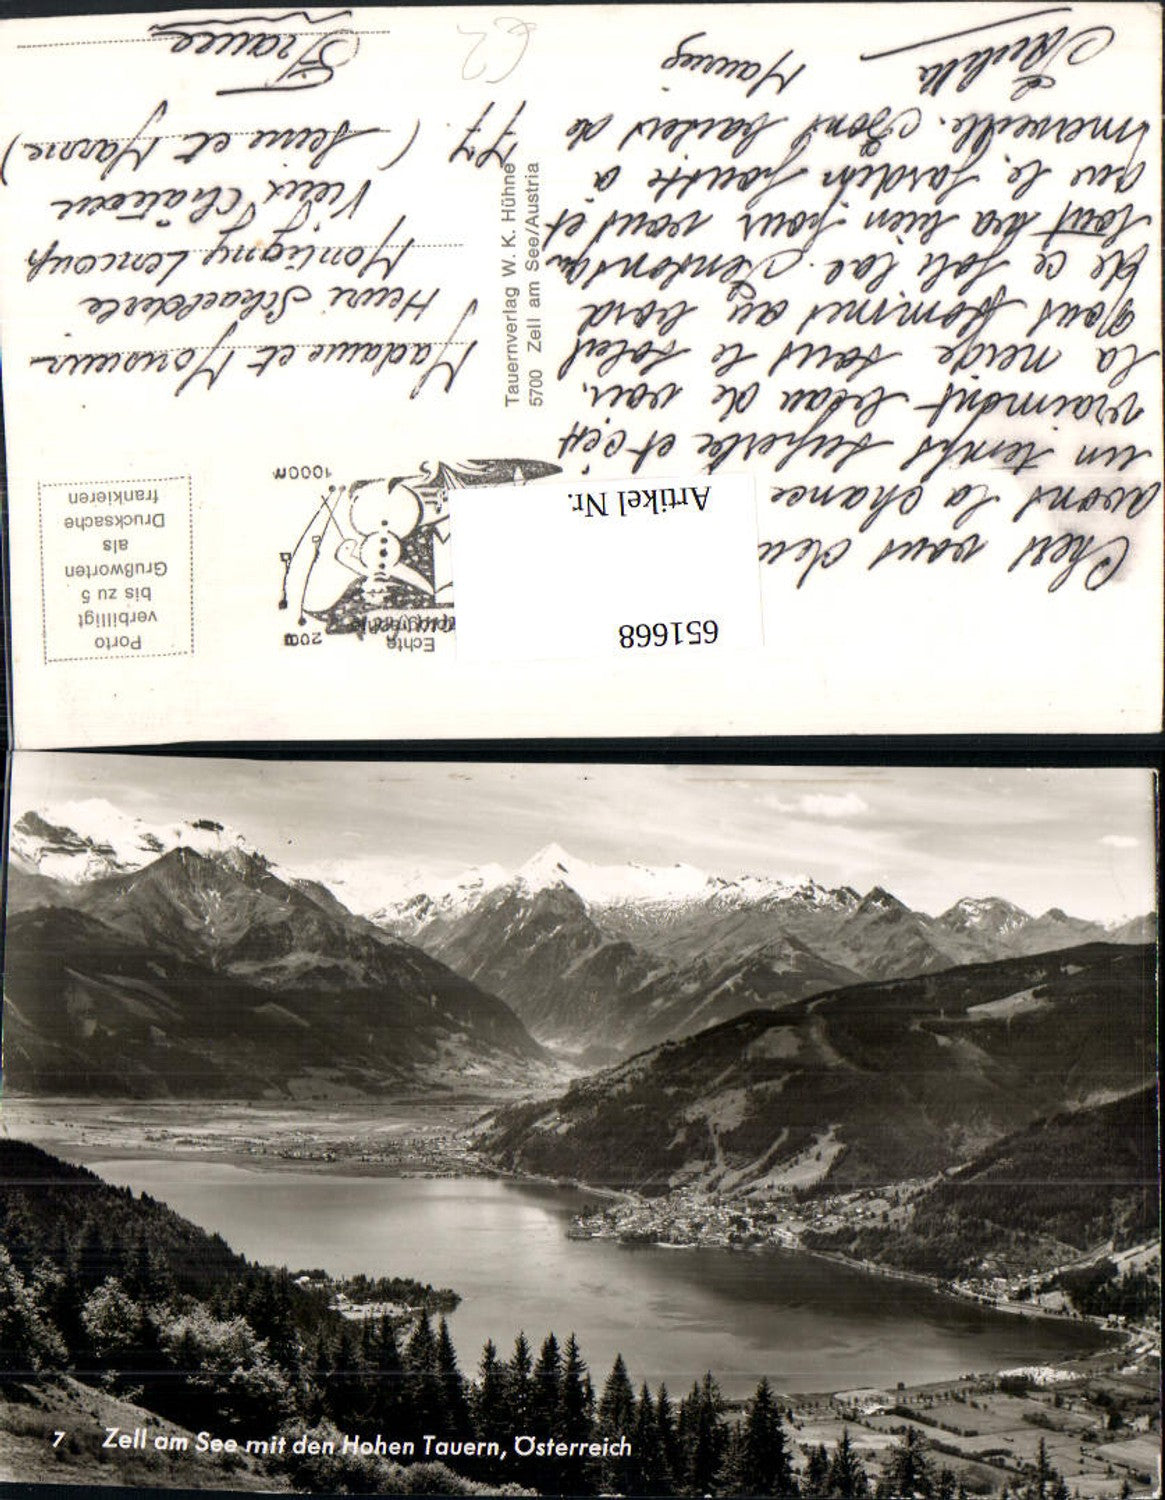 Chers vous deux
avons la chance
un temps superbe et c'est
vraiment beau de voir,
la neige sous le soleil
Nous sommes au bord
de ce joli lac.
tout va bien pour vous et
que le jardin pousse à
merveille. Bons baisers de
Maurice
Artikel Nr.
651668
Echte
2000
1000m
Porto
verbilligt
bis zu 5
Grußworten
als
Drucksache
frankieren
Tauernverlag W. K. Hühne
5700 Zell am See/Austria
Madame et Monsieur
Henri Schaedelé
Montigny Lencoup
Vieux Château
77. (Seine et Marne)
France
7 Zell am See mit den Hohen Tauern, Österreich